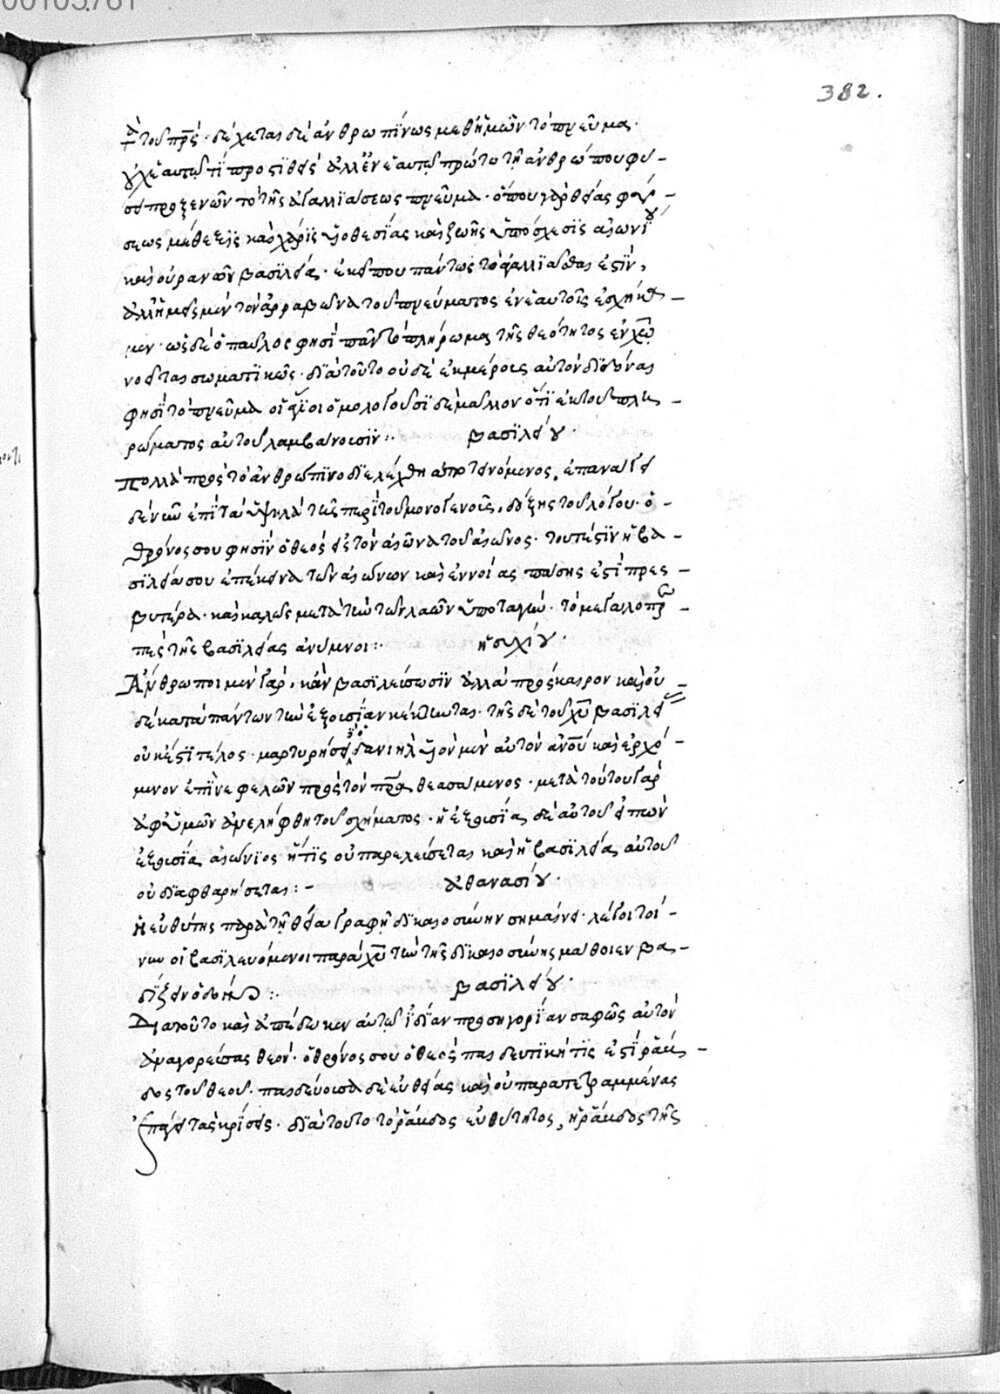 382.
τοῦ πρς· δέχεται δὲ ἀνθρωπίνως μεθ' ἡμῶν τὸ πνεῦμα·
οὐχ ἑαυτῷ τι προστιθείς ἀλλ' ἐν ἑαυτῷ πρώτῳ τῇ ἀνθρώπου φύ-
σει προξενῶν τὸ τῆς ἀγαλλιάσεως πνεῦμα· ὅπου γὰρ θείας φύ-
σεως μέθεξις καὶ χάρις υἱοθεσίας καὶ ζωῆς ὑπόσχεσις αἰωνίου
καὶ οὐρανῶν βασιλεία· ἐκεῖ που πάντως τὸ ἀγαλλιᾶσθαι ἐστίν,
ἀλλ' ἡμεῖς μὲν τὸν ἀρραβῶνα τοῦ πνεύματος ἐν ἑαυτοῖς ἐσχήκα-
μεν· ὡς δὲ ὁ παῦλος φησὶ πᾶν τὸ πλήρωμα τῆς θεότητος ἐν χῷ
νοεῖται σωματικῶς· διὰ τοῦτο οὐδὲ ἐκ μέρους αὐτὸν διδόναι
φησὶ τὸ πνεῦμα οἱ ἅγιοι ὁμολογοῦσι δὲ μᾶλλον ὅτι ἐκ τοῦ πλη-
ρώματος αὐτοῦ λαμβάνουσιν:· βασιλείου·
Πολλὰ πρὸς τὸ ἀνθρώπινον διελέχθη ἀποτεινόμενος, ἐπανάγει
δὲ νῦν ἐπὶ τὰ ὑψηλὰ τῆς περὶ τοῦ μονογενοῦς, δόξης τοῦ λόγου· ὁ
θρόνος σου φησὶν ὁ θεὸς εἰς τὸν αἰῶνα τοῦ αἰῶνος· τουτέστιν ἡ βα-
σιλεία σου ἐπέκεινα τῶν αἰώνων καὶ ἐννοίας πάσης ἐστὶ πρεσ-
βυτέρα· καὶ καλῶς μετὰ τὴν τῶν λαῶν ὑποταγὴν· τὸ μεγαλοπρε-
πὲς τῆς βασιλείας ἀνυμνοῖ:· ἡσυχίου·
Ἄνθρωποι μὲν γὰρ, κἂν βασιλεύσωσιν ἀλλὰ πρόσκαιρον καὶ οὐ-
δὲ κατὰ πάντων τὴν ἐξουσίαν κέκτωται· τῆς δὲ τοῦ χῦ βασιλεί
οὐκ ἔστι τέλος· μαρτυρήσει δανιὴλ υἱὸν μὲν αὐτὸν ἀνοῦ καὶ ἐρχό-
μενον ἐπὶ νεφελῶν πρὸς τὸν πρα θεασάμενος· μετὰ τούτου γὰρ
ἀφ' ὑμῶν ἀνελήφθη τοῦ σχήματος· ἡ ἐξουσία δὲ αὐτοῦ εἰπὼν
ἐξουσία αἰώνιος ἥτις οὐ παρελεύσεται καὶ ἡ βασιλεία αὐτοῦ
οὐ διαφθαρήσεται:- ἀθανασίου·
Ἡ εὐθύτης παρὰ τῇ θείᾳ γραφῇ δικαιοσύνην σημαίνει· λέγοι τοί-
νυν οἱ βασιλευόμενοι παρὰ χῦ τὴν τῆς δικαιοσύνης μάθοιεν βα-
δίζειν ὁδὸν:· βασιλείου·
Διὰ τοῦτο καὶ ἀπέδωκεν αὐτῷ ἰδίαν προσηγορίαν σαφῶς αὐτὸν
ἀναγορεύσας θεόν· ὁ θρόνος σου ὁ θεὸς παιδευτικὴ τίς ἐστὶ ῥάβ-
δος τοῦ θεοῦ· παιδεύουσα δὲ εὐθείας καὶ οὐ παρατετραμμένας
ἐπάγει τὰς κρίσεις· διὰ τοῦτο τὸ ῥάβδος εὐθύτητος, ἡ ῥάβδος τῆς